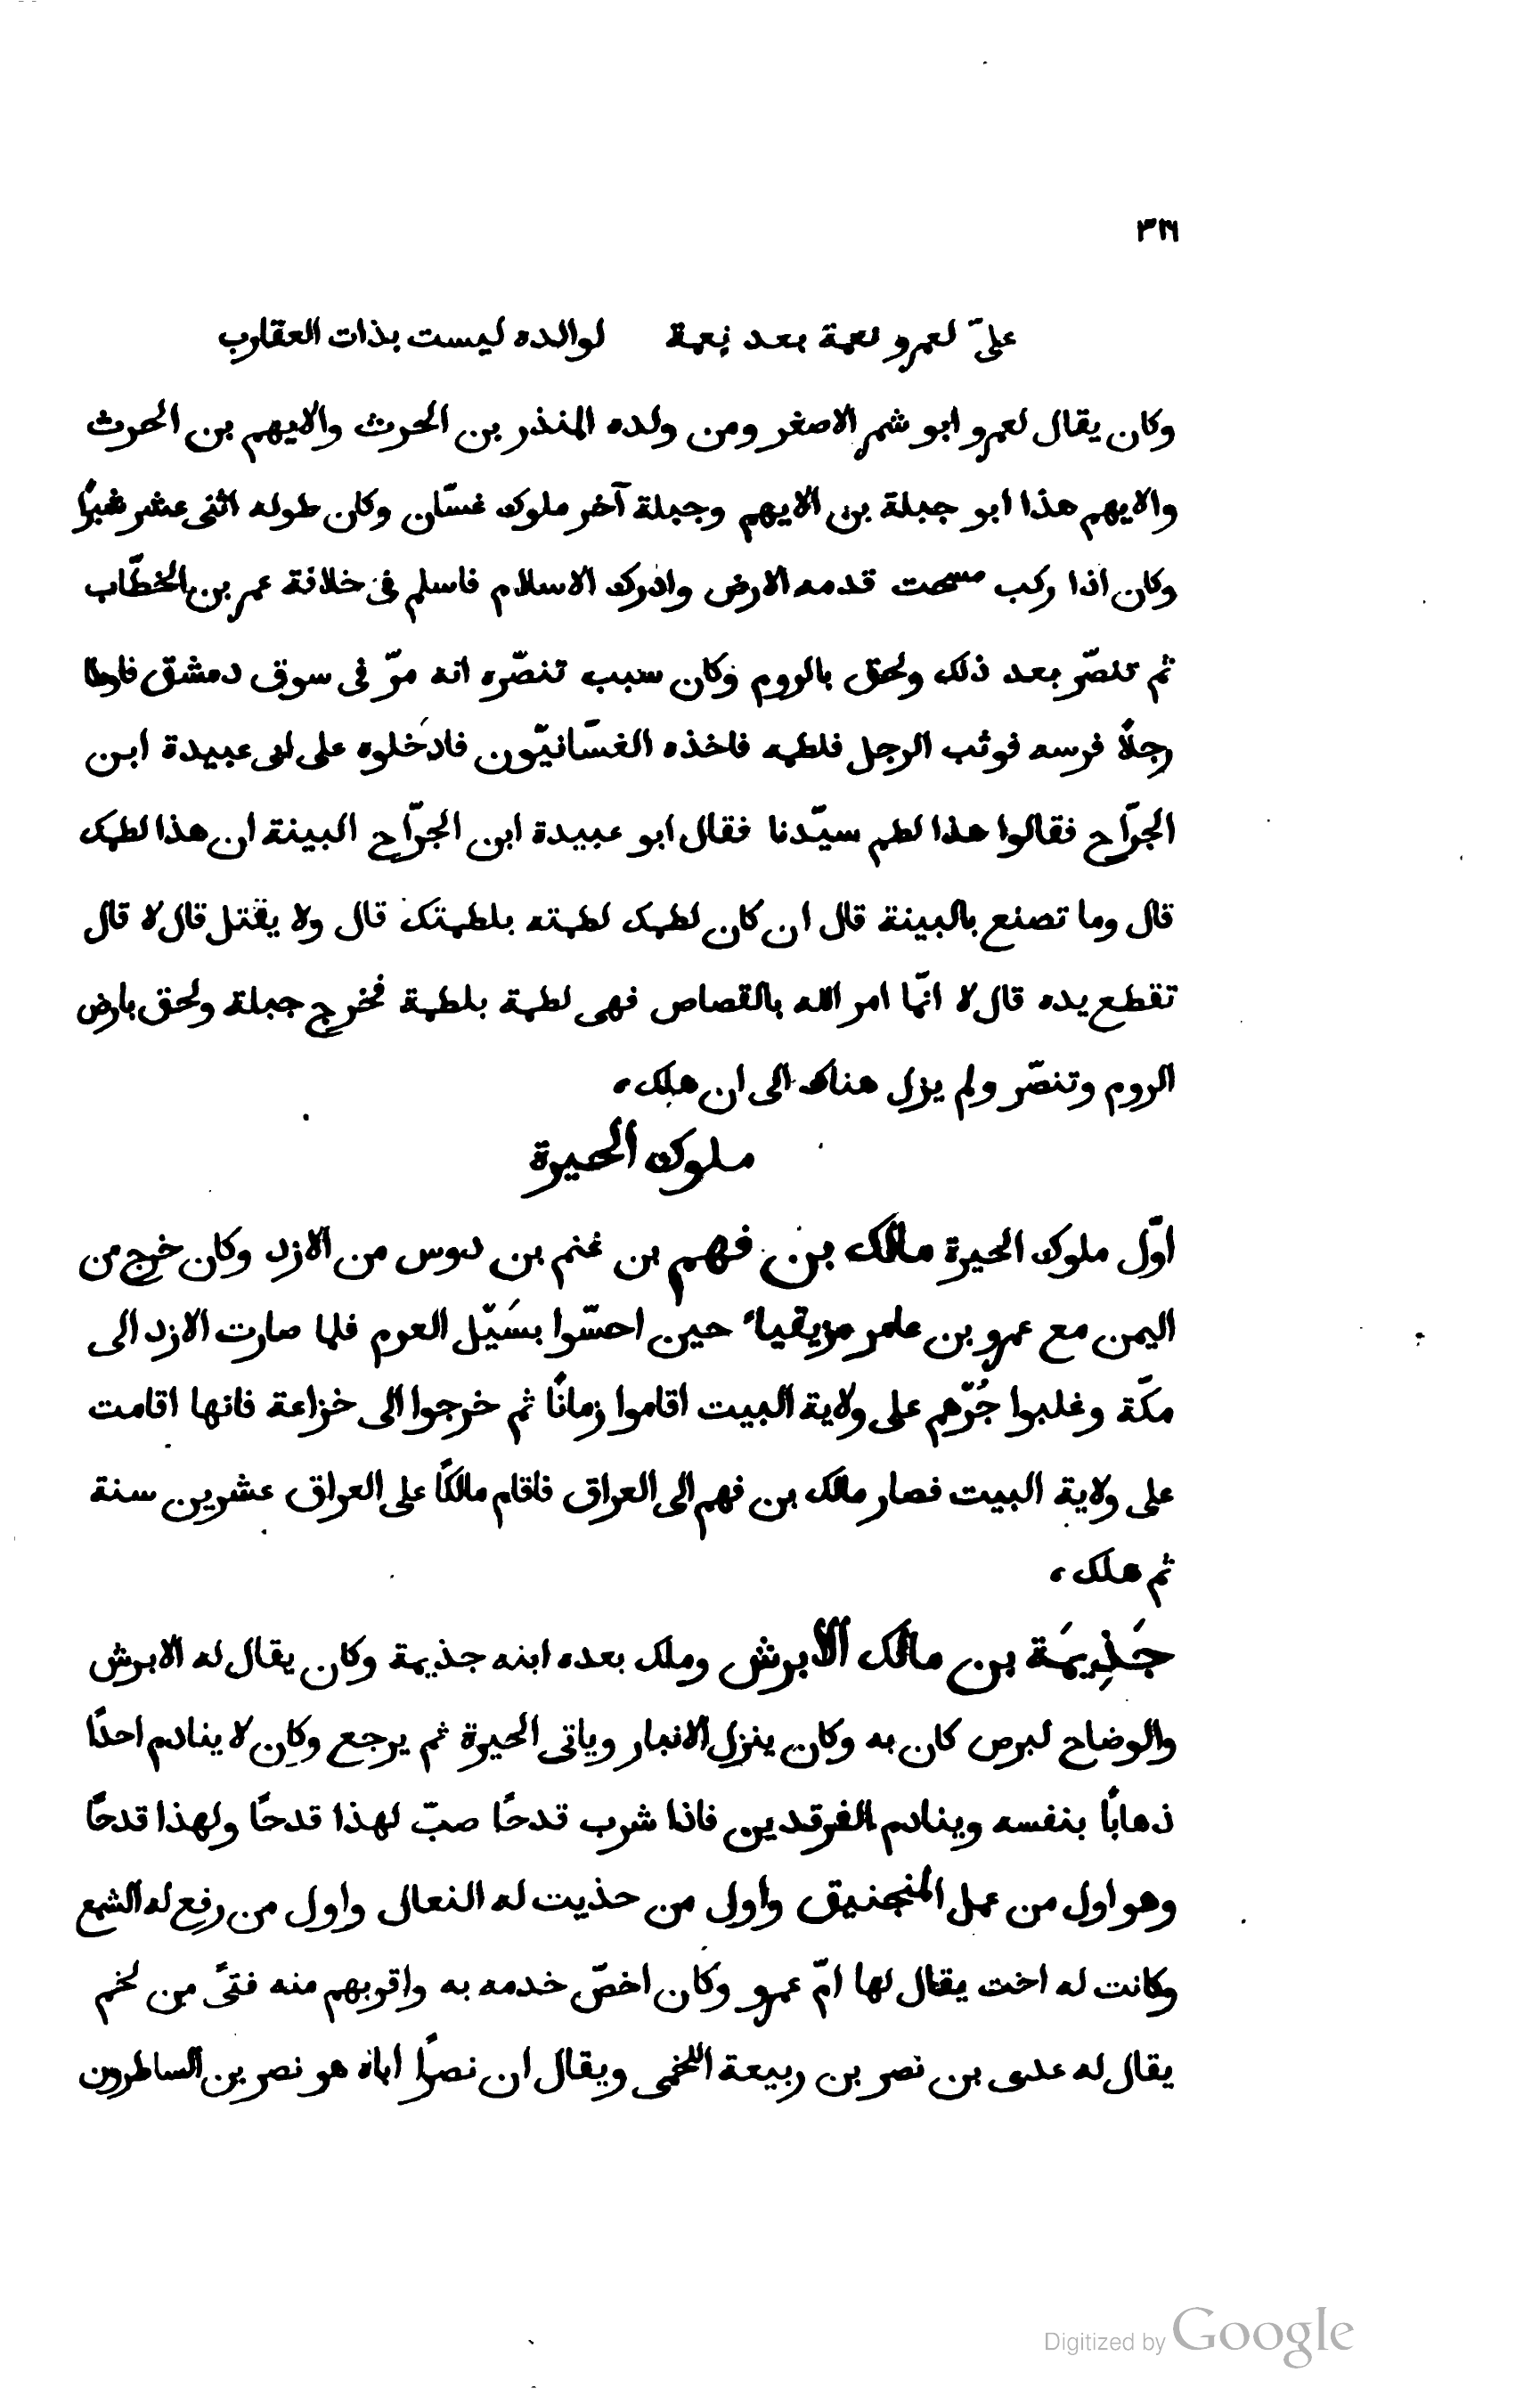 ٣١٦
علىّ لعمرو نعمة بعد نعمة لوالده ليست بذات العقارب
وكان يقال لعمرو ابو شمر الاصغر ومن ولده المنذر بن الحرث والايهم بن الحرث
والايهم هذا ابو جبلة بن الايهم وجبلة آخر ملوك غسّان وكان طوله اثنى عشر شبرًا
وكان اذا ركب مسحت قدمه الارض وادرك الاسلام فاسلم فى خلافة عمر بن الخطّاب
ثم تنصّر بعد ذلك ولحق بالروم وكان سبب تنصّره انه مرّ فى سوق دمشق فاوطا
رجلًا فرسه فوثب الرجل فلطمه فاخذه الغسّانيّون فادخلوه على ابى عبيدة ابن
الجرّاح فقالوا هذا لطم سيّدنا فقال ابو عبيدة ابن الجرّاح البينة ان هذا لطمك
قال وما تصنع بالبينة قال ان كان لطمك لطمته بلطمتك قال ولا يقتل قال لا قال
تقطع يده قال لا انّما امر الله بالقصاص فهى لطمة بلطمة فخرج جبلة ولحق بارض
الروم وتنصّر ولم يزل هناك الى ان هلك،
ملوك الحيرة
اوّل ملوك الحيرة مالك بن فهم بن غنم بن دوس من الازد وكان خرج من
اليمن مع عمرو بن عامر مزيقياء حين احسّوا بسَيّل العرم فلما صارت الازد الى
مكّة وغلبوا جُرّهم على ولاية البيت اقاموا زمانًا ثم خرجوا الى خزاعة فانها اقامت
على ولاية البيت فصار مالك بن فهم الى العراق فاقام مالكًا على العراق عشرين سنة
ثم هلك،
جَذِيمَة بن مالك الأبرش وملك بعده ابنه جذيمة وكان يقال له الابرش
والوضاح لبرص كان به وكان ينزل الانبار وياتى الحيرة ثم يرجع وكان لا ينادم احدًا
ذهابًا بنفسه وينادم الفرقدين فاذا شرب قدحًا صبّ لهذا قدحًا ولهذا قدحًا
وهو اول من عمل المنجنيق واول من حذيت له النعال واول من رفع له الشمع
وكانت له اخت يقال لها امّ عمرو وكان اخصّ خدمه به واقربهم منه فتىً من لخم
يقال له عدى بن نصر بن ربيعة اللخمى ويقال ان نصرًا اباه هو نصر بن الساطرون
Digitized by Google